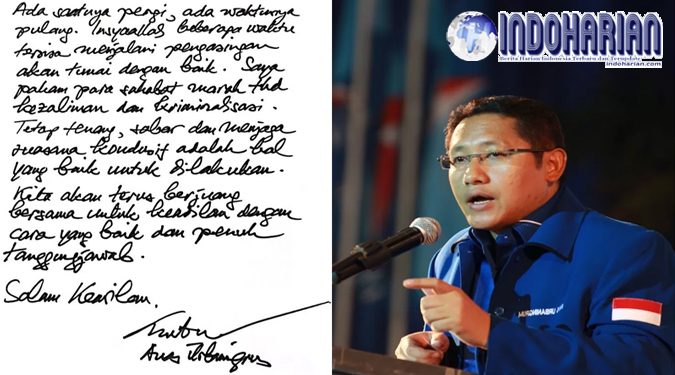 Ada saatnya pergi, ada waktunya
pulang. Insyaallah beberapa waktu
tersisa menjalani pengasingan
akan tunai dengan baik. Saya
paham para sahabat marah thd
kezaliman dan kriminalisasi.
Tetap tenang, sabar dan menjaga
suasana kondusif adalah hal
yang baik untuk dilakukan.
Kita akan terus berjuang
bersama untuk keadilan dengan
cara yang baik dan penuh
tanggungjawab.
Salam Keadilan.
Anas Urbaningrum
INDOHARIAN
Berita Harian Indonesia Terbaru dan Terupdate
indoharian.com